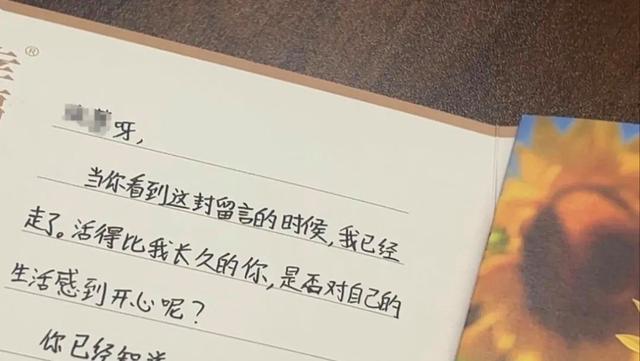 呀,
当你看到这封留言的时候,我已经
走了。活得比我长久的你,是否对自己的
生活感到开心呢?
你已经知道